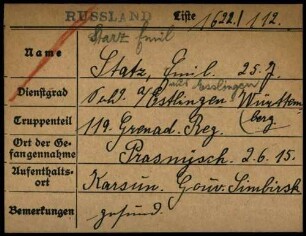 RUSSLAND Liste 1622./112.
Starz Emil
Name Statz, Emil. 25. J.
aus Esslingen
Dienstgrad a/Estlingen Württem-
berg
Truppenteil 119. Grenad. Reg.
Ort der Ge-
fangennahme Prasnysch. 2.6.15.
Aufenthalts-
ort Karsun. Gouv. Simbirsk
Bemerkungen gesund.